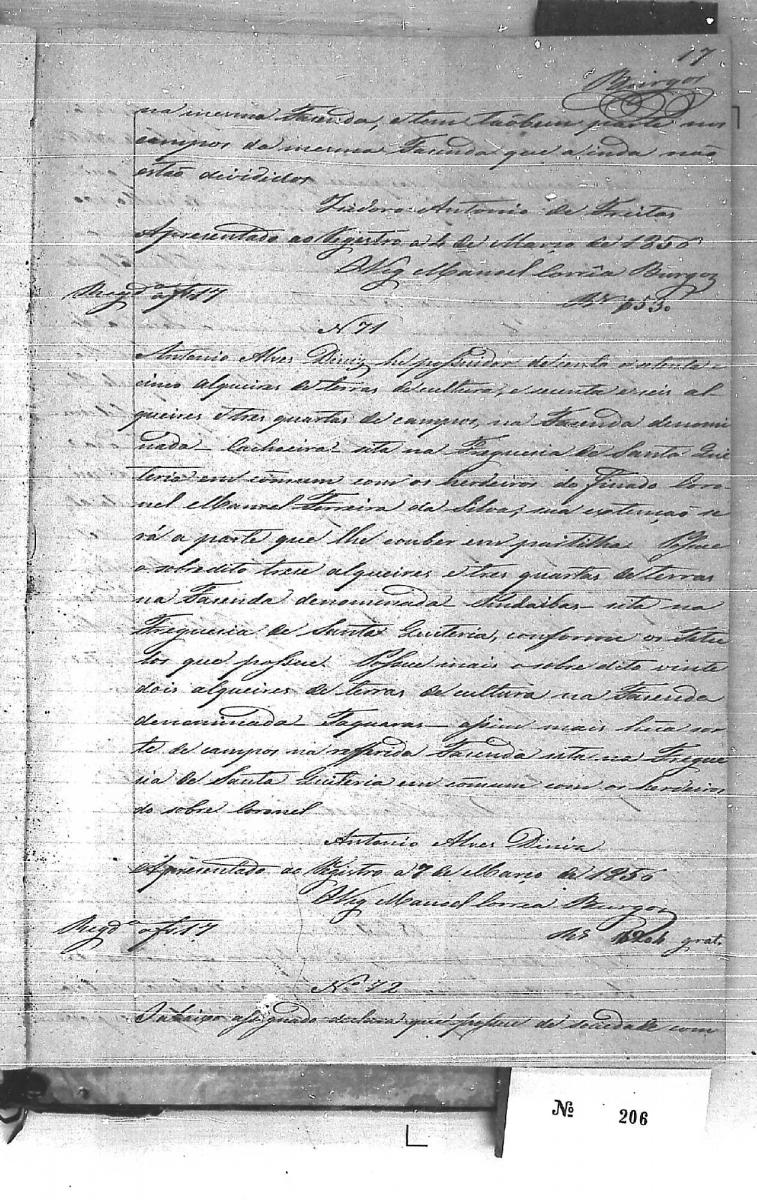 17
Burgos
na mesma Fazenda, e tem tãobem parte nos
campos da mesma Fazenda que ainda não
estão divididos
Izidoro Antonio de Freitas
Apresentado ao Registro a 4 de Março de 1856
O Vigº Manoel Corrêa Burgos
Regdº a fl 17
Rs 530
N 71
Antonio Alves Diniz he possuidor de cento oitenta e
cinco alqueires de terras de cultura, e secenta e seis al-
queires e tres quartas de campos, na Fazenda denomi
nada - Cachoeira - sita na Freguesia de Santa Qui
teria em cõmum com os herdeiros do finado Coro-
nel Manoel Ferreira da Silva, sua extenção se
rá a parte que lhe couber em partilha. Possue
o sobredito trese alqueires e tres quartas de terras
na Fazenda denomenada - Pindaibas - sita na
Freguesia de Santa Quiteria, conforme os titu
los que possue. Possue mais o sobre dito vinte
dois alqueires de terras de cultura na Fazenda
denominada - Taquaras - assim mais hũa sor
te de campos na refferida Fazenda sita na Fregue
sia de Santa Quiteria em cõmum com os herdeiros
do sobre Coronel
Antonio Alves Diniz
Apresentado ao Registro a 7 de Março de 1856
O Vigº Manoel Corrêa Burgos
Regdº a fl 17
Rs
N.º 72
O abaixo assignado declara que possue de sociedade com
Nº 206